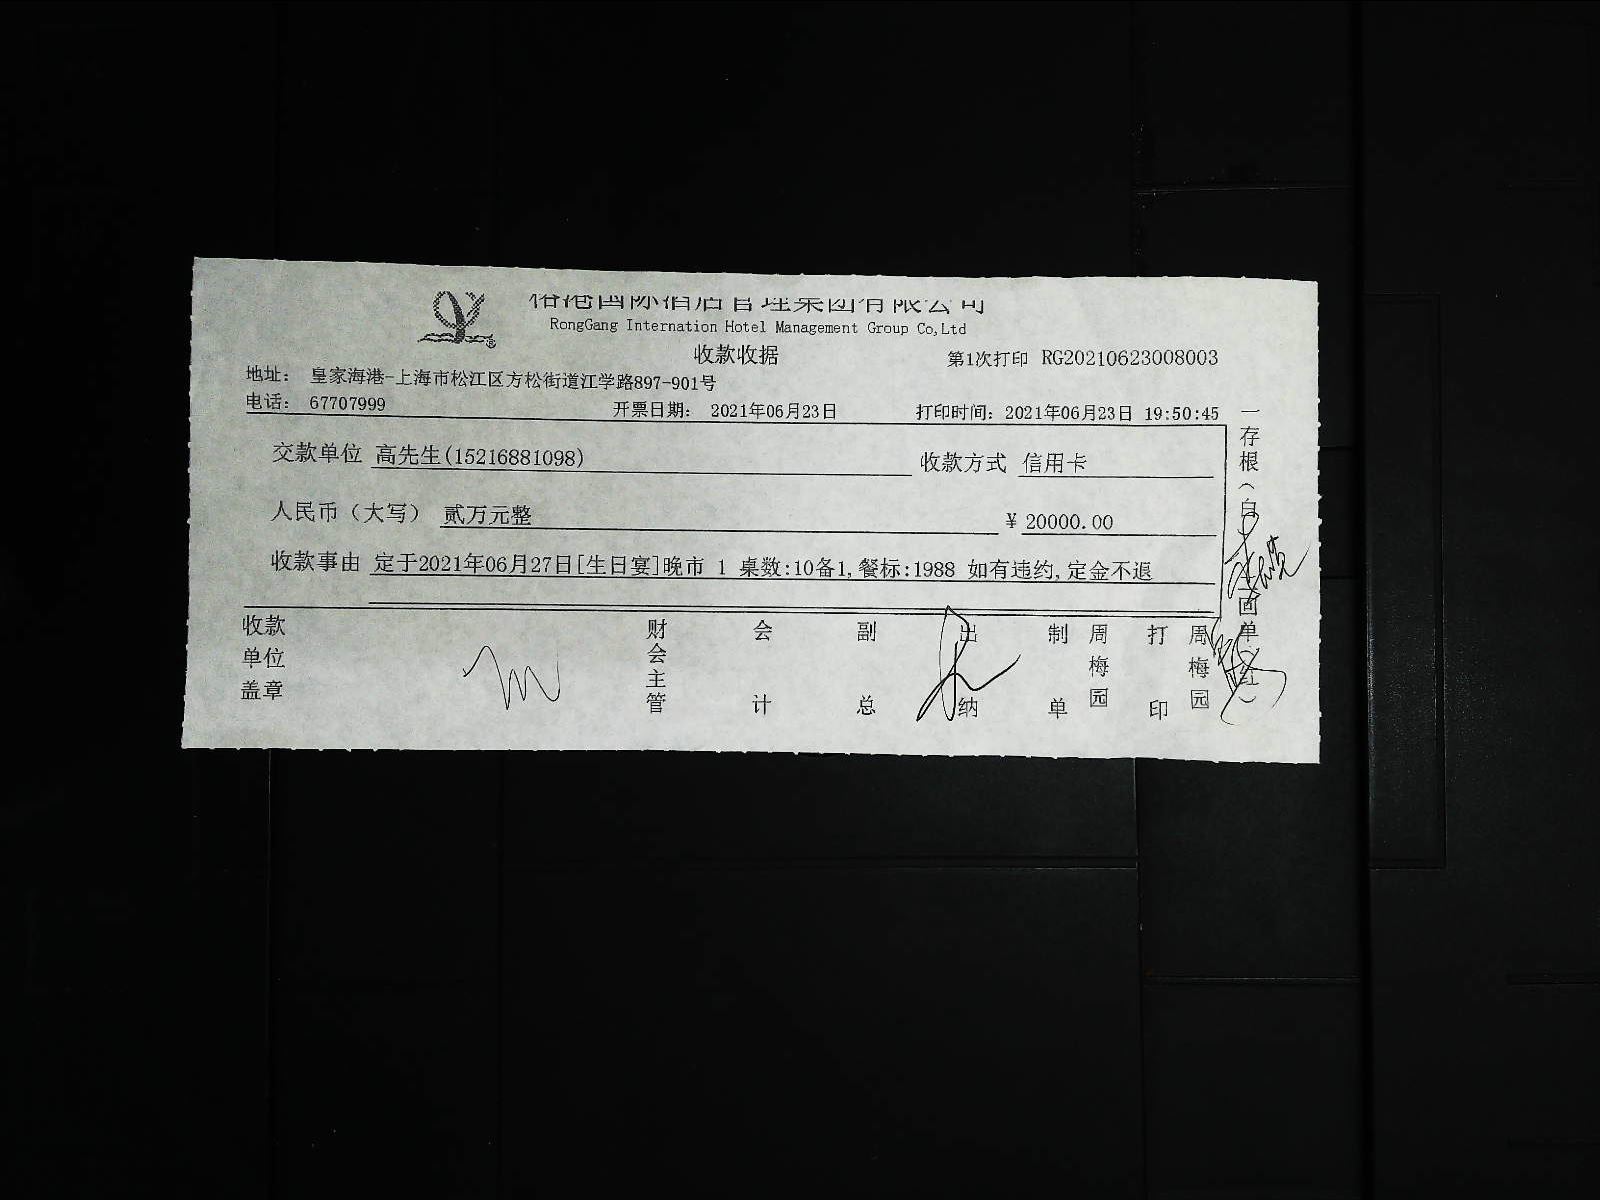 港国际酒店管理集团有限公司
RongGang Internation Hotel Management Group Co,Ltd
收款收据
第1次打印 RG20210623008003
地址： 皇家海港-上海市松江区方松街道江学路897-901号
电话： 67707999 开票日期： 2021年06月23日 打印时间：2021年06月23日 19:50:45
交款单位 高先生(15216881098) 收款方式 信用卡
人民币（大写） 贰万元整 ¥ 20000.00
收款事由 定于2021年06月27日[生日宴]晚市 1 桌数:10备1,餐标:1988 如有违约,定金不退
收款单位盖章 财会主管 会计 副总 出纳 制单 周梅园 打印 周梅园
一存根（白 面单（红）